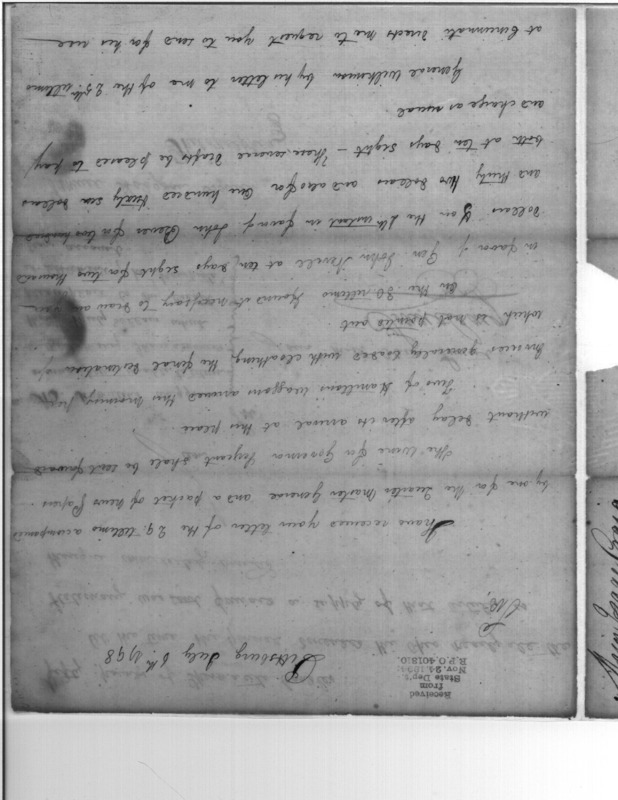 Received
from
State Dep't.
R.P.O. 401810.
Pittsburg July 6th 1798
Sir
I have received your letter of the 29. Ultimo accompanied
by one for the Quarter Master General and a packet of News Papers
The Wine for Governor Sargeant shall be sent forward
without delay after its arrival at this place
Two of Hamiltons waggons arrived this morning,
Invoices generally loaded with cloathing the final destination of
which is not pointed out
On the 30 Ultimo I found it necessary to draw on you
in favor of Gen John Nevill at ten days sight for two thousand
Dollars & on the instant in favor of John for two hundred
and thirty two dollars and also for One hundred Sixty six dollars
both at ten days sight - These several drafts be pleased to pay
and charge as usual
General Wilkinson by his letter to me of the 25th Ultimo
at Cincinnati directs me to request you to send for his use
Major Isaac Craig